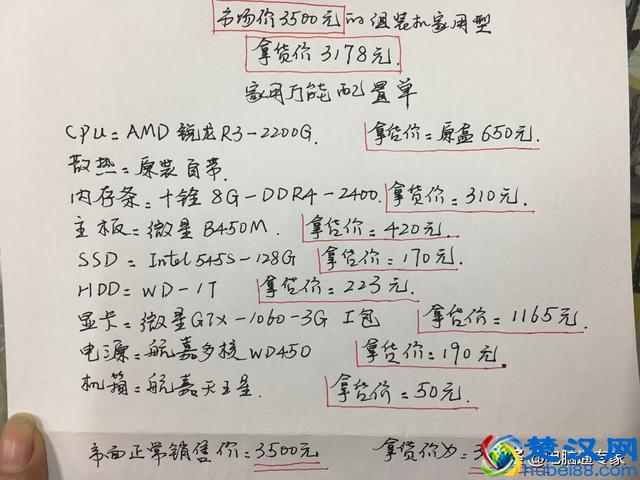 市场价3500元的组装机家用型
拿货价3178元.
家用万能配置单
CPU=AMD 锐龙R3-2200G. 拿货价=原盒650元.
散热=原装自带.
内存条=十铨8G-DDR4-2400. 拿货价=310元.
主板=微星B450M. 拿货价=420元.
SSD=Intel 545S-128G 拿货价=170元.
HDD=WD-1T 拿货价=223元.
显卡=微星GTX-1060-3G 工包 拿货价=1165元.
电源=航嘉多核WD450 拿货价=190元.
机箱=航嘉天王星. 拿货价=50元.
市面正常销售价=3500元 拿货价为=3
楚汉网
hubei88.com
电脑通专家